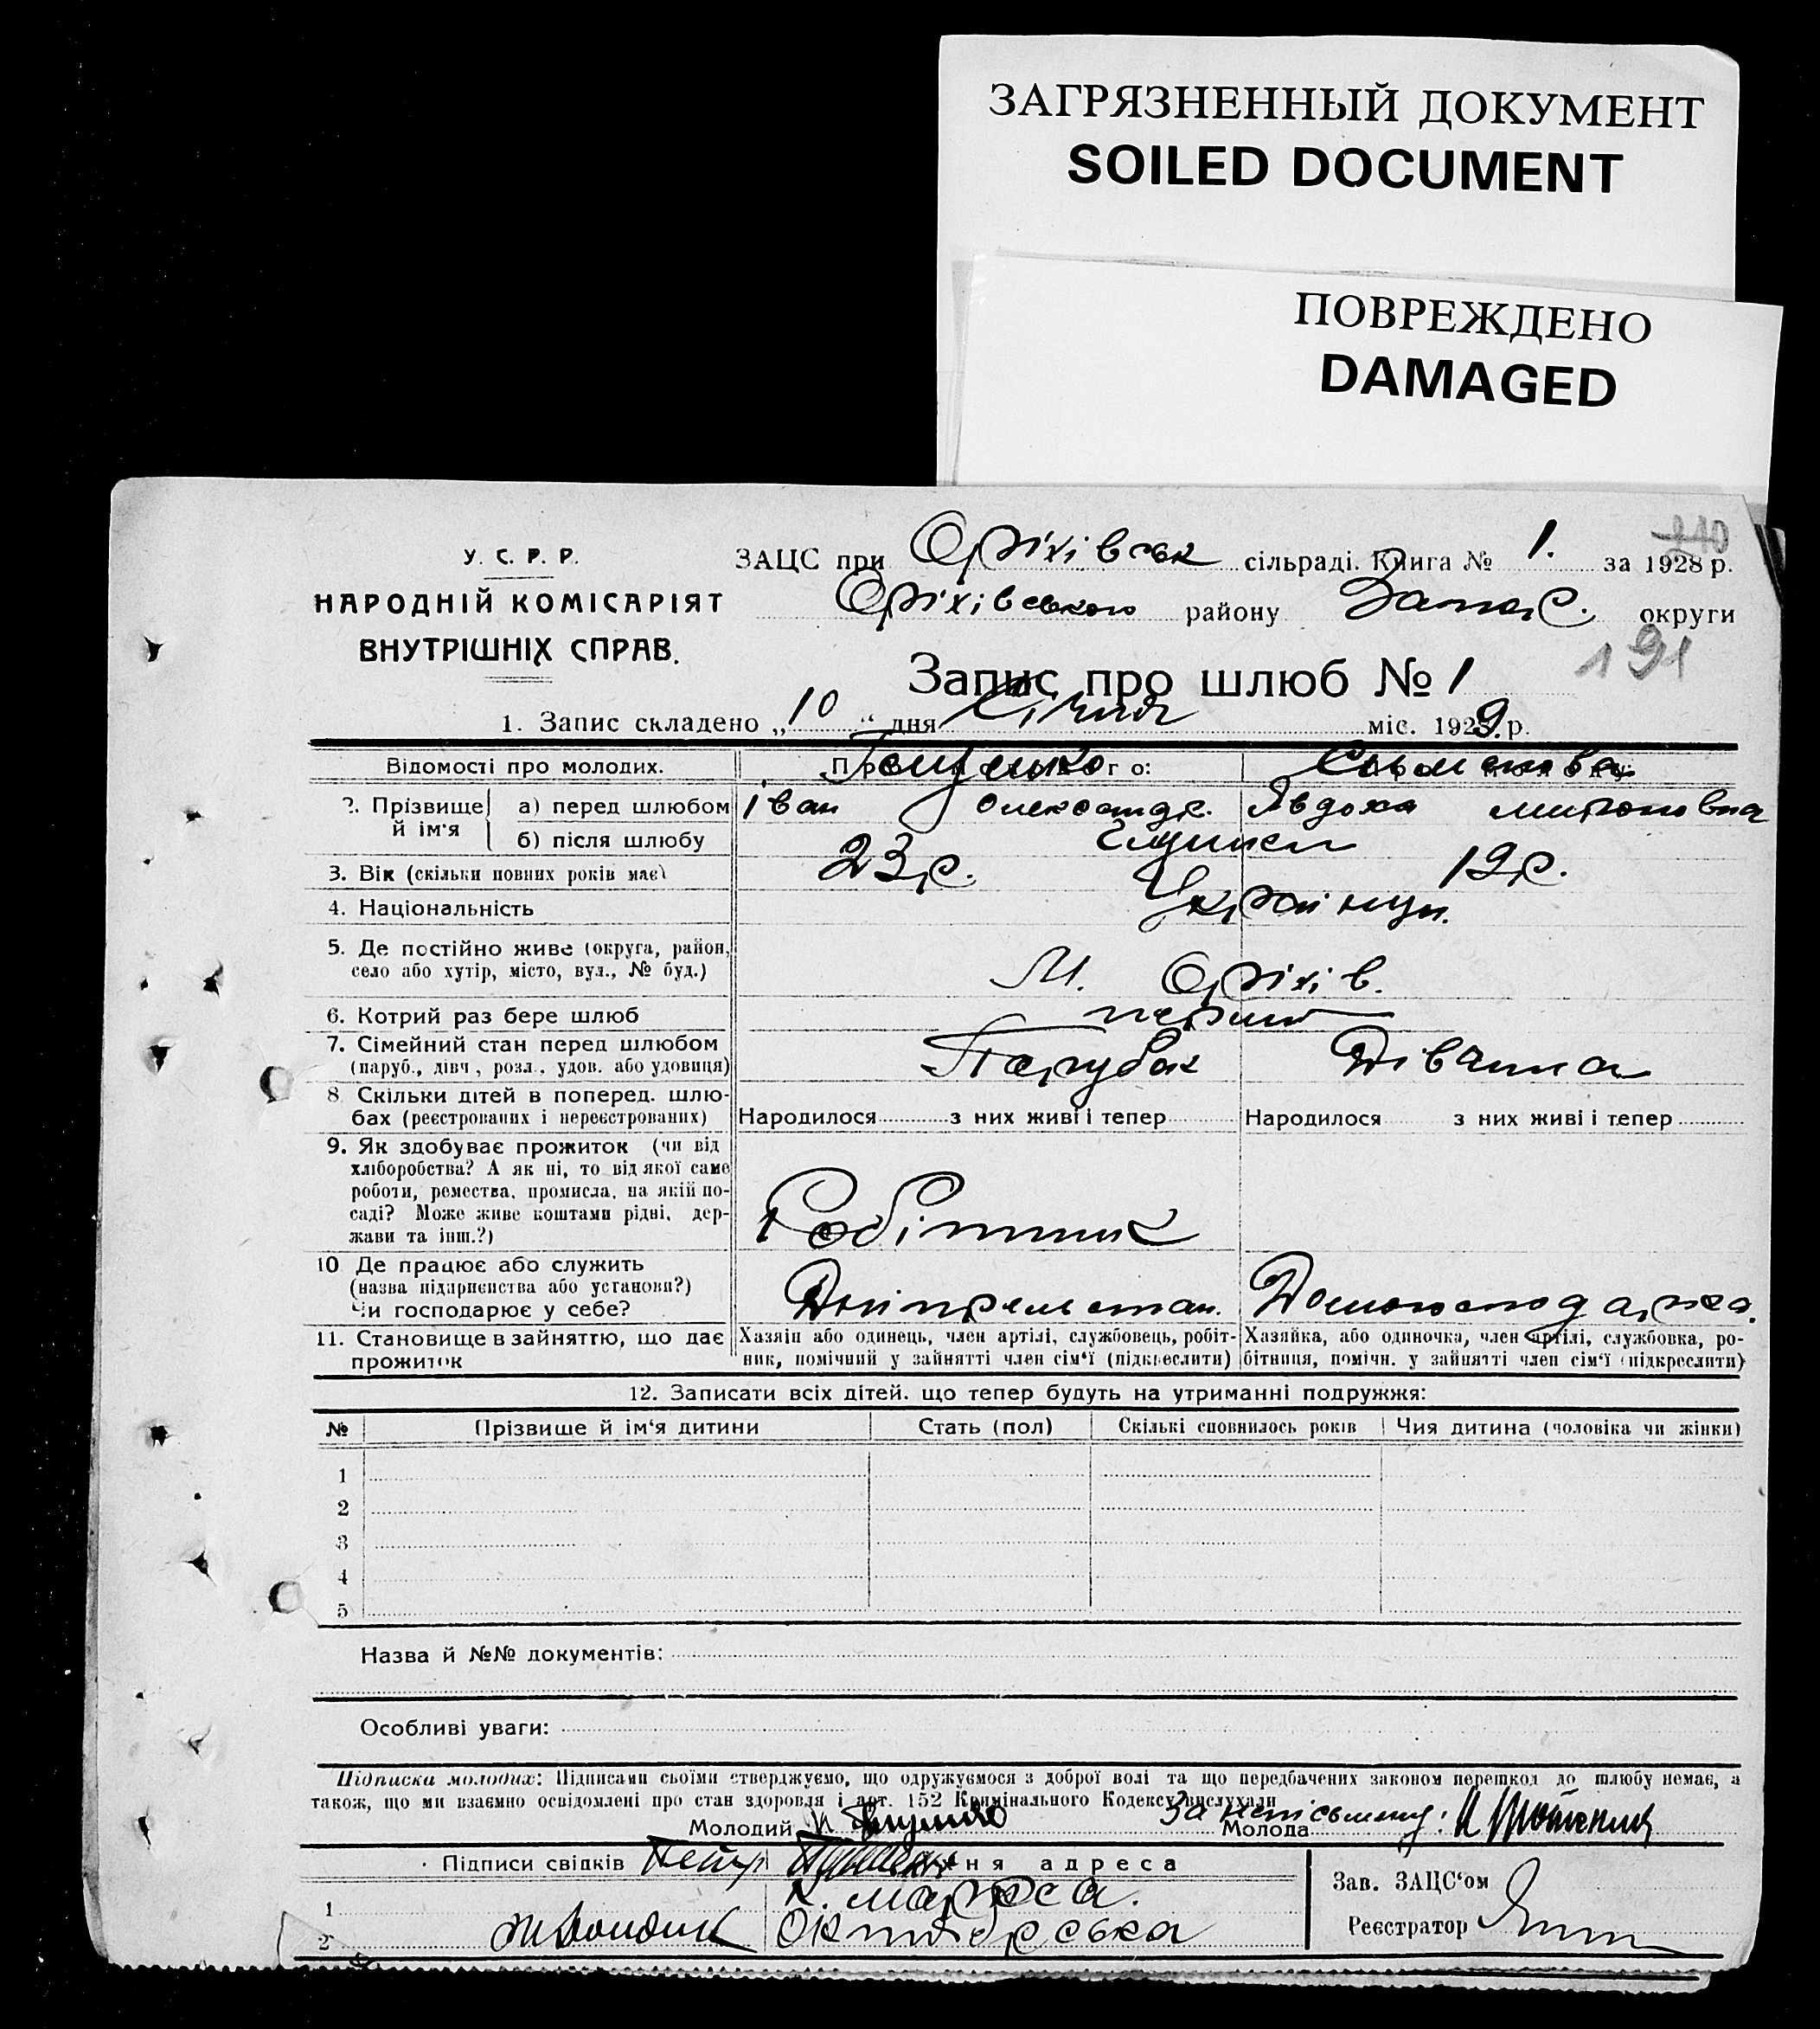 ЗАГРЯЗНЕННЫЙ ДОКУМЕНТ
SOILED DOCUMENT
ПОВРЕЖДЕНО
DAMAGED
У. С. Р. Р.
НАРОДНІЙ КОМІСАРІЯТ
ВНУТРІШНІХ СПРАВ.
210
ЗАЦС при Оріхівськ сільраді. Книга № 1. за 1928 р.
Оріхівського району Запор. округи
191
Запис про шлюб № 1
1. Запис складено „10“ дня Січня міс. 1929 р.
Відомості про молодих.
2. Прізвище й ім'я
а) перед шлюбом Іван Олександр. Явдоха Митроновна
б) після шлюбу
3. Вік (скільки повних років має) 23 р. 19 р.
4. Національність Українц.
5. Де постійно живе (округа, район, село або хутір, місто, вул., № буд.) М. Оріхів.
6. Котрий раз бере шлюб перший
7. Сімейний стан перед шлюбом (паруб., дівч., розл., удов. або удовиця) Парубок Дівчина
8 Скільки дітей в поперед. шлюбах (реєстрованих і нереєстрованих) Народилося з них живі і тепер Народилося з них живі і тепер
9. Як здобуває прожиток (чи від
хліборобства? А як ні, то від якої саме
роботи, ремества, промисла, на якій по-
саді? Може живе коштами рідні, дер-
жави та інш.?) Робітник
10 Де працює або служить
(назва підприємства або установи?)
Чи господарює у себе? Домогосподарка.
11. Становище в зайняттю, що дає прожиток
Хазяїн або одинець, член артілі, службовець, робіт-
ник, помічний у зайнятті член сім'ї (підкреслити)
Хазяйка, або одиночка, член артілі, службовка, ро-
бітниця, помічн. у зайнятті член сім'ї (підкреслити)
12. Записати всіх дітей. що тепер будуть на утриманні подружжя:
№ Прізвище й ім'я дитини Стать (пол) Скількі сповнилось років Чия дитина (чоловіка чи жінки)
1
2
3
4
5
Назва й №№ документів:
Особливі уваги:
Підписки молодих: Підписами своїми стверджуємо, що одружуємося з доброї волі та що передбачених законом перешкод до шлюбу немає, а
також, що ми взаємно освідомлені про стан здоровля і арт. 152 Кримінального Кодексу вислухали
Молодий Молода За неписьменну:
Підписи свідків Петр адреса
1 К. Маркса.
2 Октябрська
Зав. ЗАЦС'ом
Реєстратор